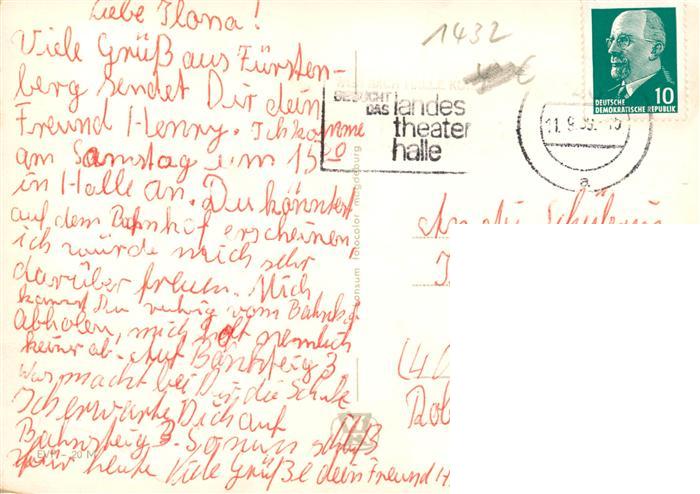 Liebe Ilona!
Viele Grüß aus Fürsten-
berg sendet Dir dein
Freund Henry. Ich komme
am Samstag um 15 20
in Halle an. Du könntest
auf dem Bahnhof erscheinen,
ich würde mich sehr
darüber freuen. Mich
kannst Du ruhig vom Bahnhof
Abholen, mich holt nemlich
keiner ab. Auf Bahnsteig 3.
Was macht bei Dir die Schule
Ich erwarte Dich auf
Bahnsteig 3. So nun schluß
für heute Viele Grüße dein Freund H
EVP - 20 M
konsum fotocolor magdeburg
1432
€
BESUCHT
DAS landes
theater
halle
11.9.
a
10
DEUTSCHE
DEMOKRATISCHE REPUBLIK
An die Schülerin
I
(40
Rob